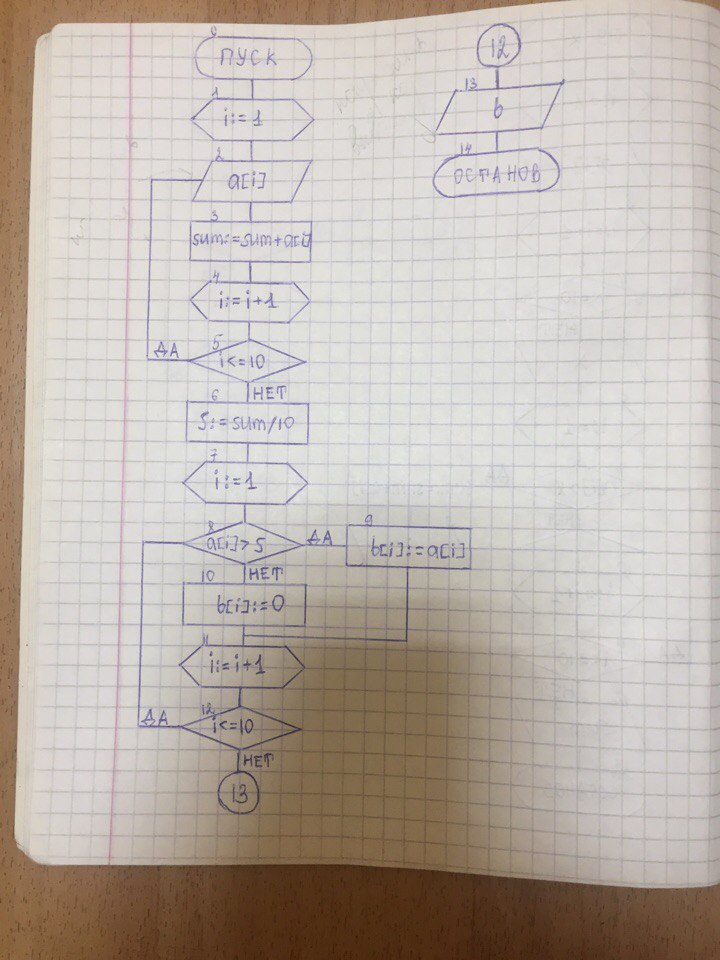 0
ПУСК
1
i:=1
2
a[i]
3
sum:=sum+a[i]
4
i:=i+1
5
i<=10
ДА
НЕТ
6
S:=sum/10
7
i:=1
8
a[i]>S
ДА
9
b[i]:=a[i]
НЕТ
10
b[i]:=0
11
i:=i+1
12
i<=10
ДА
НЕТ
13
12
13
b
14
ОСТАНОВ